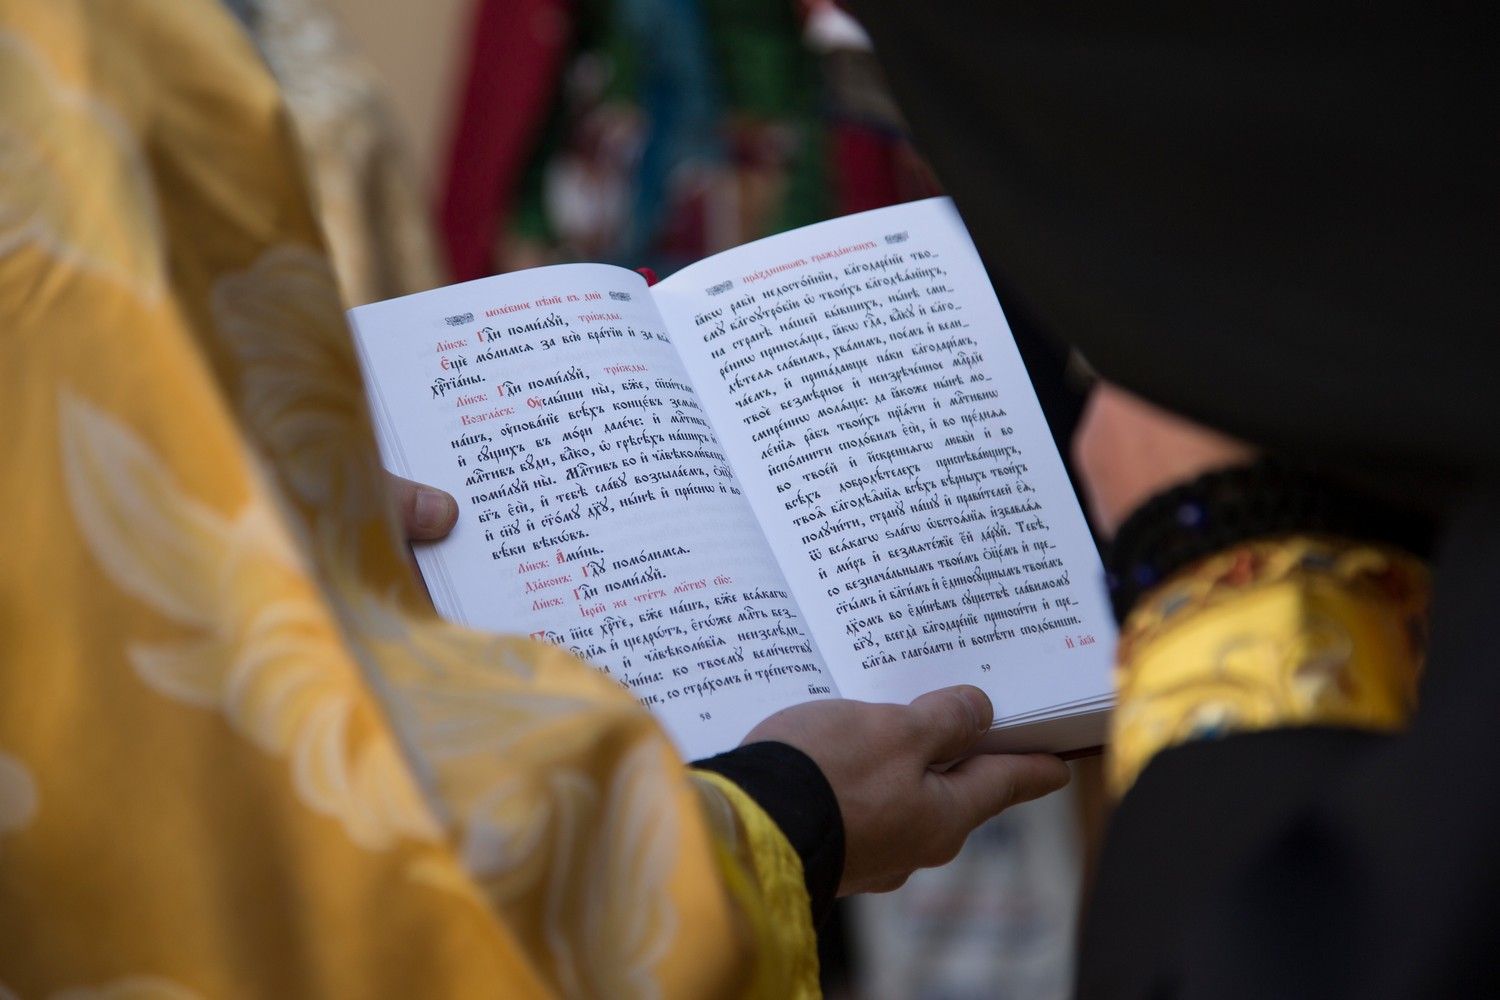 МОЛЕ́БНОЕ ПѢ́НЇЕ ВЪ ДНЍ
Ли́къ: Гд҇и поми́лꙋй, три́жды.
Є҆щѐ мо́лимсѧ за всю̀ бра́тїю и҆ за всѧ̑
хрⷭ҇тїа́ны.
Ли́къ: Гд҇и поми́лꙋй, три́жды.
Во́згласъ: Оу҆слы́ши ны̀, бж҃е, сп҃си́телю
на́шъ, оу҆пова́нїе всѣ́хъ конце́въ землѝ
и҆ сꙋ́щихъ въ мо́ри дале́че: и҆ млⷭ҇тивъ,
млⷭ҇тивъ бꙋ́ди, влⷣко, ѡ҆ грѣсѣ́хъ на́шихъ и҆
поми́лꙋй ны̀. Млⷭ҇тивъ бо и҆ чл҃вѣколю́бецъ
бг҃ъ є҆сѝ, и҆ тебѣ̀ сла́вꙋ возсыла́емъ, ѻ҆ц҃ꙋ̀
и҆ сн҃ꙋ и҆ ст҃о́мꙋ дх҃ꙋ, ны́нѣ и҆ при́снѡ и҆ во
вѣ́ки вѣкѡ́въ.
Ли́къ: А҆ми́нь.
Дїа́конъ: Гдⷭ҇ꙋ помо́лимсѧ.
Ли́къ: Гд҇и поми́лꙋй.
І҆ере́й же чте́тъ мл҃твꙋ сїю̀:
Гд҇и і҆и҃се хрⷭ҇тѐ, бж҃е на́шъ, бж҃е всѧ́кагѡ
и҆ щедро́тъ, є҆гѡ́же млⷭ҇ть без_
и҆ чл҃вѣколю́бїѧ неизслѣ́ди_
пꙋчи́на: ко твоемꙋ̀ вели́чествꙋ
со стра́хомъ и҆ тре́петомъ,
ꙗ҆́кѡ
58
ПРА́ЗДНИКОВЪ ГРАЖДА́НСКИХЪ
ꙗ҆́кѡ рабѝ недосто́йнїи, бл҃годаре́нїе тво_
емꙋ̀ бл҃гоꙋтро́бїю ѡ҆ твои́хъ бл҃годѣѧ́нїихъ,
на странѣ̀ на́шей бы́вшихъ, ны́нѣ сми_
ре́ннѡ приносѧ́ще, ꙗ҆́кѡ гдⷭ҇а, влⷣкꙋ и҆ бл҃го_
дѣ́телѧ сла́вимъ, хва́лимъ, пое́мъ и҆ вели_
ча́емъ, и҆ припа́дающе па́ки бл҃годари́мъ,
твоѐ безмѣ́рное и҆ неизрече́нное млⷭ҇рдїе
смире́ннѡ молѧ́ще: да ꙗ҆́коже ны́нѣ мо_
ле́нїѧ ра̑бъ твои́хъ прїѧ́ти и҆ млⷭ҇тивнѡ
и҆спо́лнити сподо́билъ є҆сѝ, и҆ во пре́днѧѧ
во твое́й и҆ и҆́скреннѧгѡ любвѝ и҆ во
всѣ́хъ добродѣ́телехъ преспѣва́ющихъ,
твоѧ̑ бл҃годѣѧ̑нїѧ всѣ́хъ вѣ́рныхъ твои́хъ
полꙋчи́ти, странꙋ̀ на́шꙋ и҆ прави́телей є҆ѧ̀,
ѿ всѧ́кагѡ ѕла́гѡ ѡ҆бстоѧ́нїѧ и҆збавлѧ́ѧ
и҆ ми́ръ и҆ безмѧте́жїе є҆́й да́рꙋй. Тебѣ̀,
со безнача́льнымъ твои́мъ ѻ҆ц҃е́мъ и҆ пре_
ст҃ы́мъ и҆ бл҃ги́мъ и҆ є҆диносꙋ́щнымъ твои́мъ
дх҃омъ во є҆ди́нѣмъ сꙋществѣ̀ сла́вимомꙋ
бг҃ꙋ, всегда̀ бл҃годаре́нїе приноси́ти и҆ пре_
бл҃га̑ѧ глаго́лати и҆ воспѣ́ти сподо́биши.
И҆ а҆́бїе
59